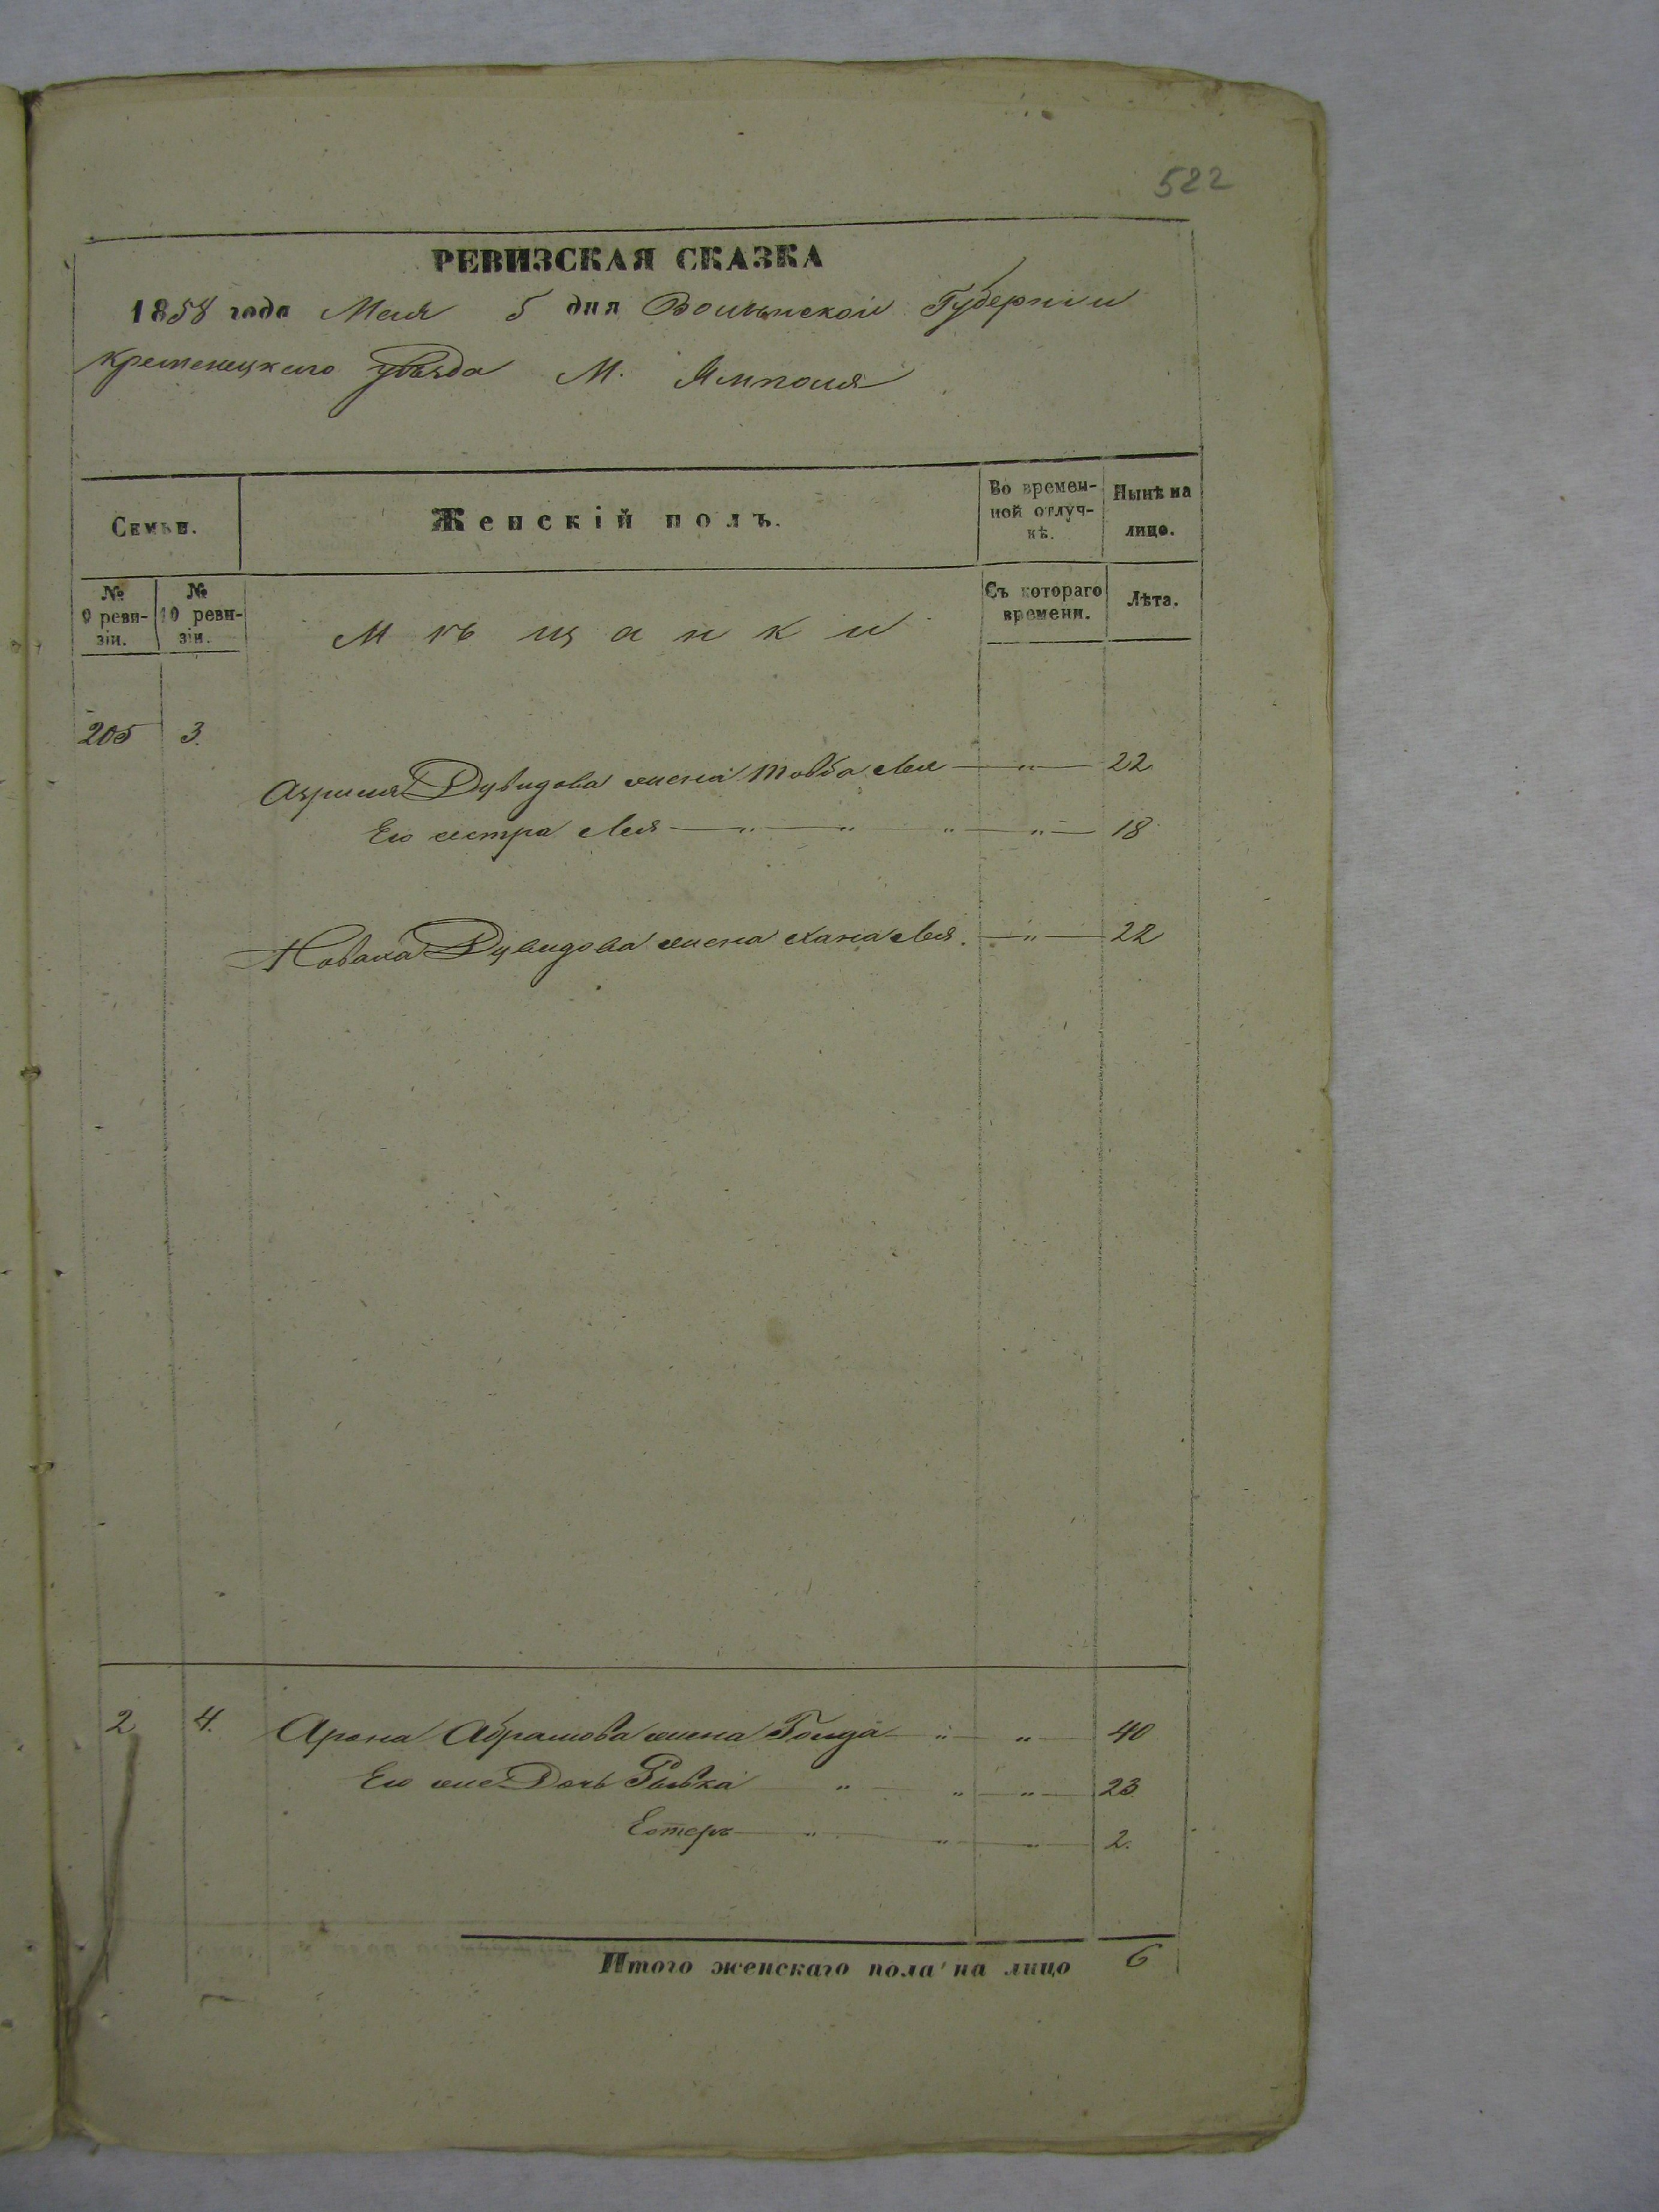 522
РЕВИЗСКАЯ СКАЗКА
1858 года Мая 5 дня Волынской Губерніи
Кременецкаго уѣзда М. Ямполя
Семьи. Женскій полъ. Во времен-ной отлуч-кѣ. Нынѣ на лицо.
№ 9 реви-зіи. № 10 реви-зіи. Мѣщанки Съ котораго времени. Лѣта.
205 3.
Азриля Дувидова жена Товба Лея — " — 22
Его сестра Лея — " — " " — " — 18
Дувидова жена Хана Лея. — " — 22
2 4. Арона Абрамова жена Голда — " — " — 40
Его же Дочь Рывка — " — " — " — 23.
Естеръ — " — " — " — 2.
Итого женскаго пола на лицо 6